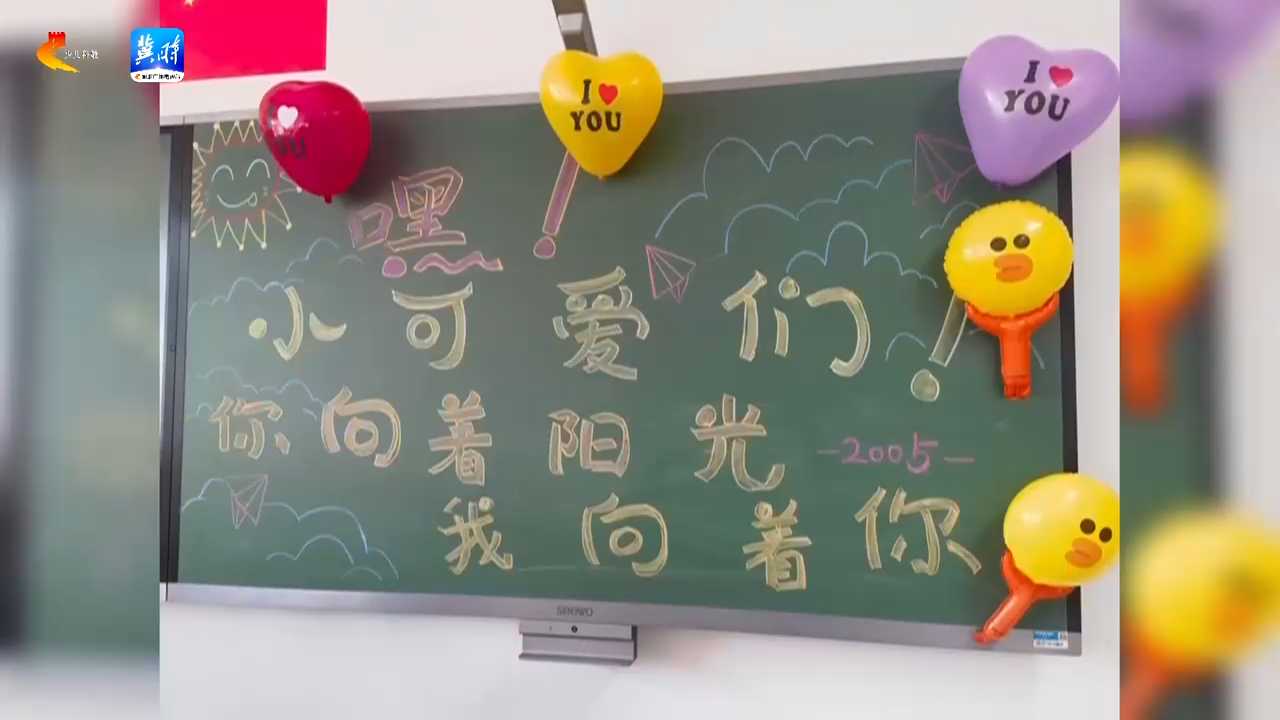 少儿科教
冀时
I ❤ YOU
I ❤ YOU
嘿!
小可爱们!
你向着阳光
-2005-
我向着你
SEEWO